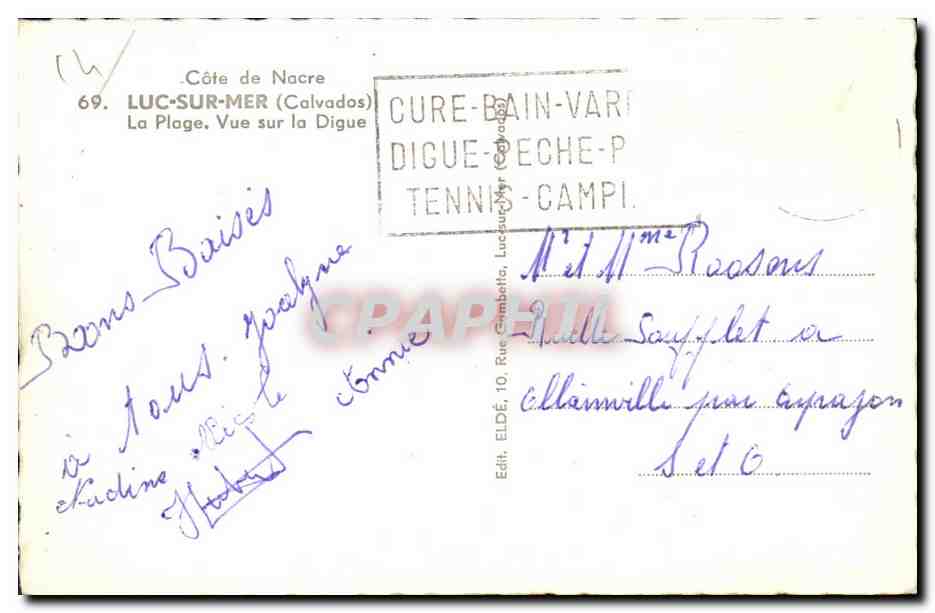 Côte de Nacre
69. LUC-SUR-MER (Calvados)
La Plage. Vue sur la Digue
CURE-BAIN-VAR
DIGUE-PECHE-P
TENNIS-CAMPI
Bons Baisés
à tous. Jocelyne
Nadine Nicole Annie
Hubert
Edit. ELDÉ, 10, Rue Gambetta, Luc-sur-Mer (Calvados)
Mr et Mme
Ruelle Soufflet a
Mainville par Arpajon
S et O
CPAPHIL